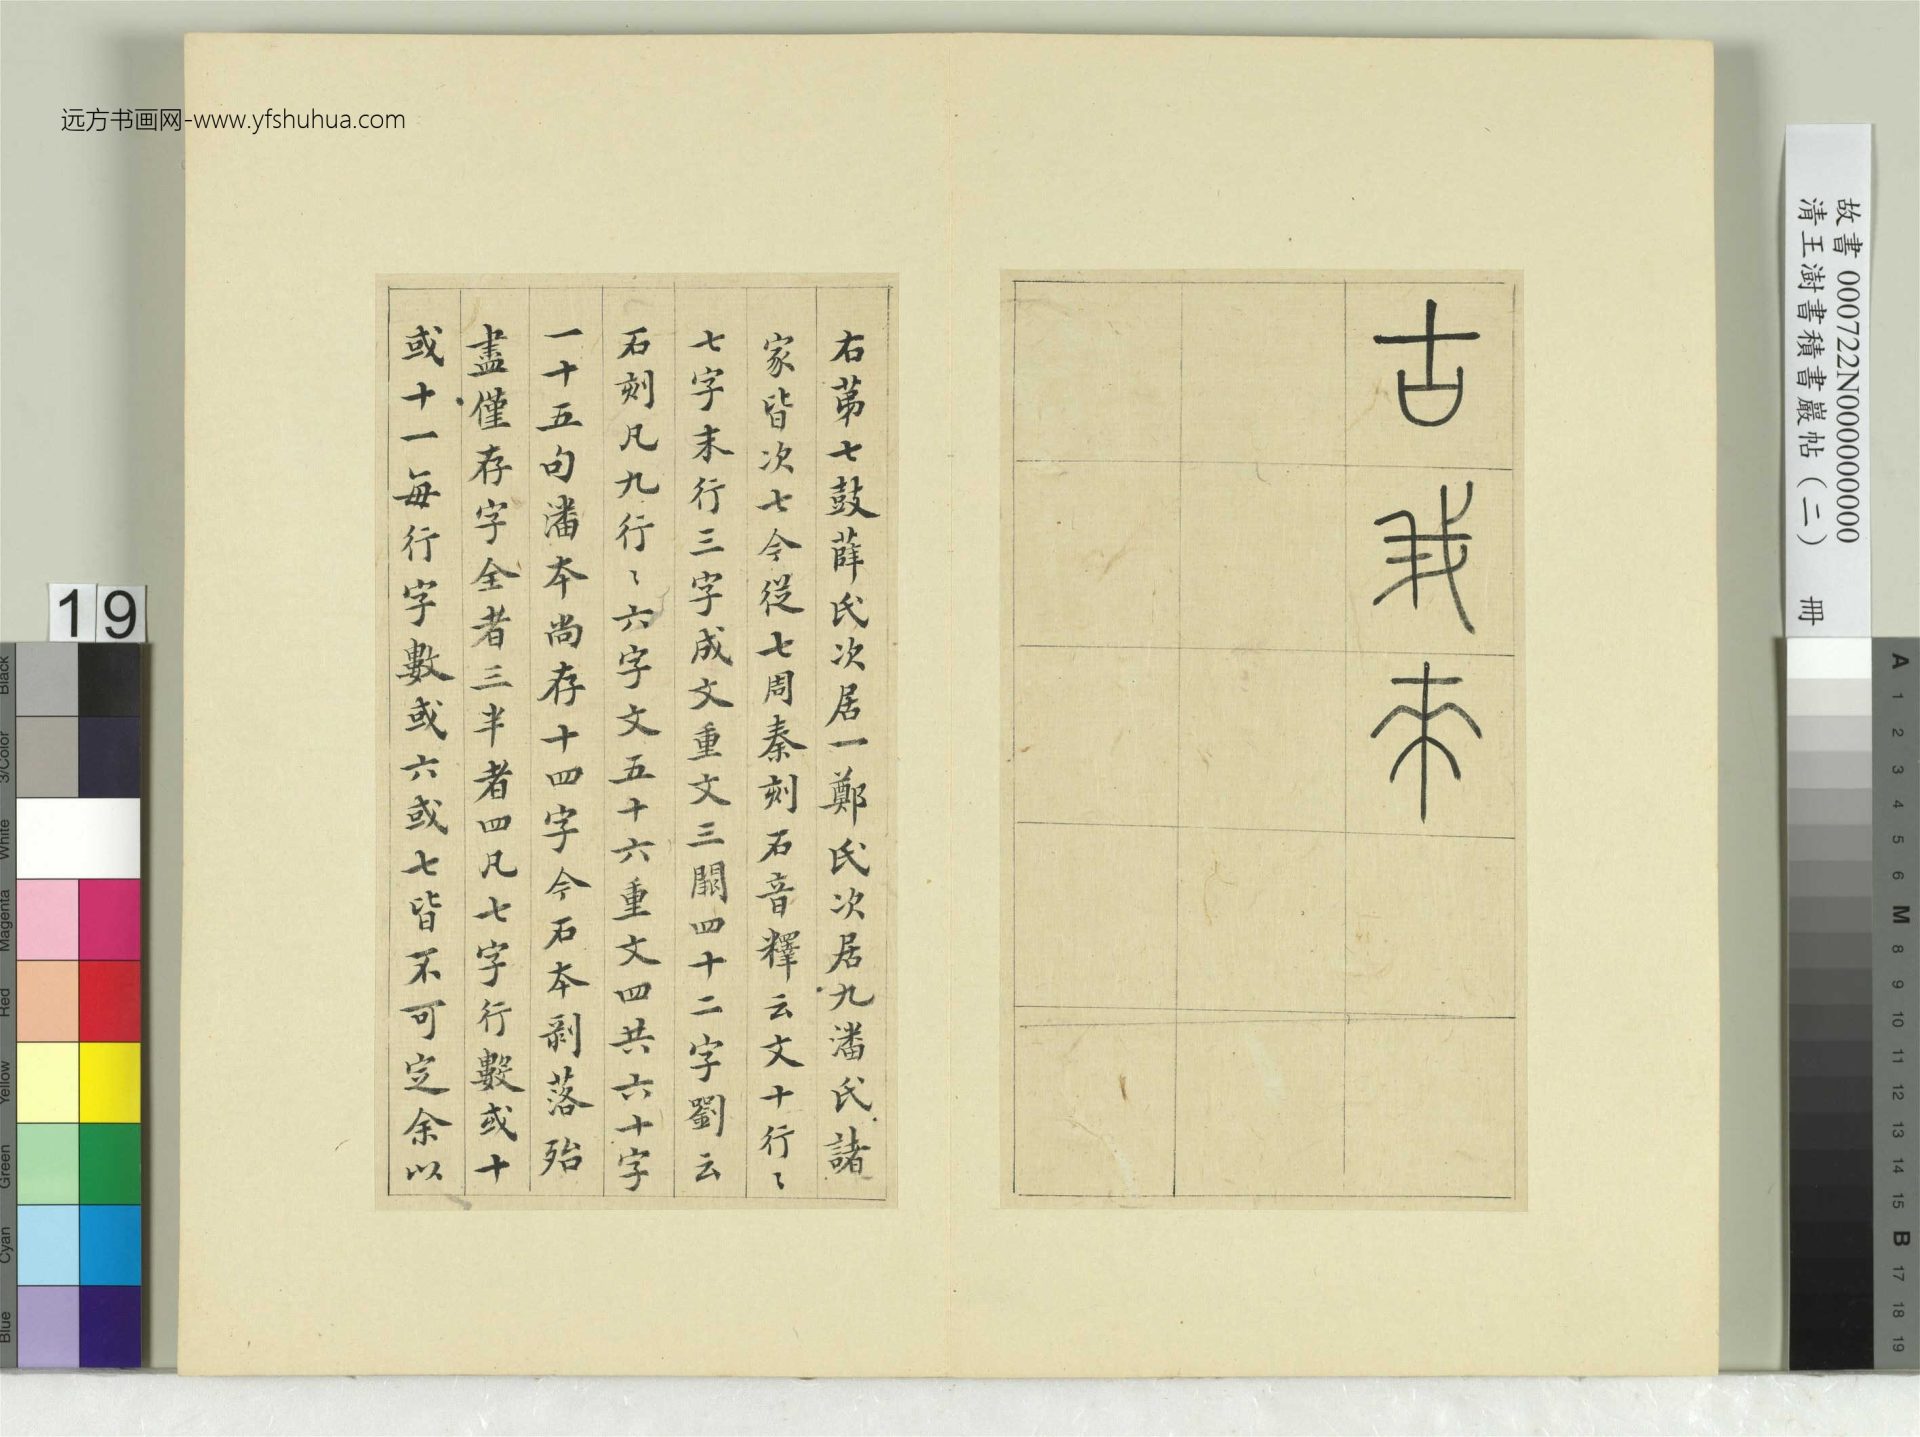 远方书画网-www.yfshuhua.com
故書 000722N000000000
清王澍書積書巖帖（二） 冊
古我來
右苐七鼓薛氏次居一鄭氏次居九潘氏諸
家皆次七今從七周秦刻石音釋云文十行〻
七字末行三字成文重文三闕四十二字劉云
石刻凡九行〻六字文五十六重文四共六十字
一十五句潘本尚存十四字今石本剥落殆
盡僅存字全者三半者四凡七字行數或十
或十一每行字數或六或七皆不可定余以
19
Black
3/Color
White
Magenta
Red
Yellow
Green
Cyan
Blue
A
1
2
3
4
5
6
M
8
9
10
11
12
13
14
15
B
17
18
19